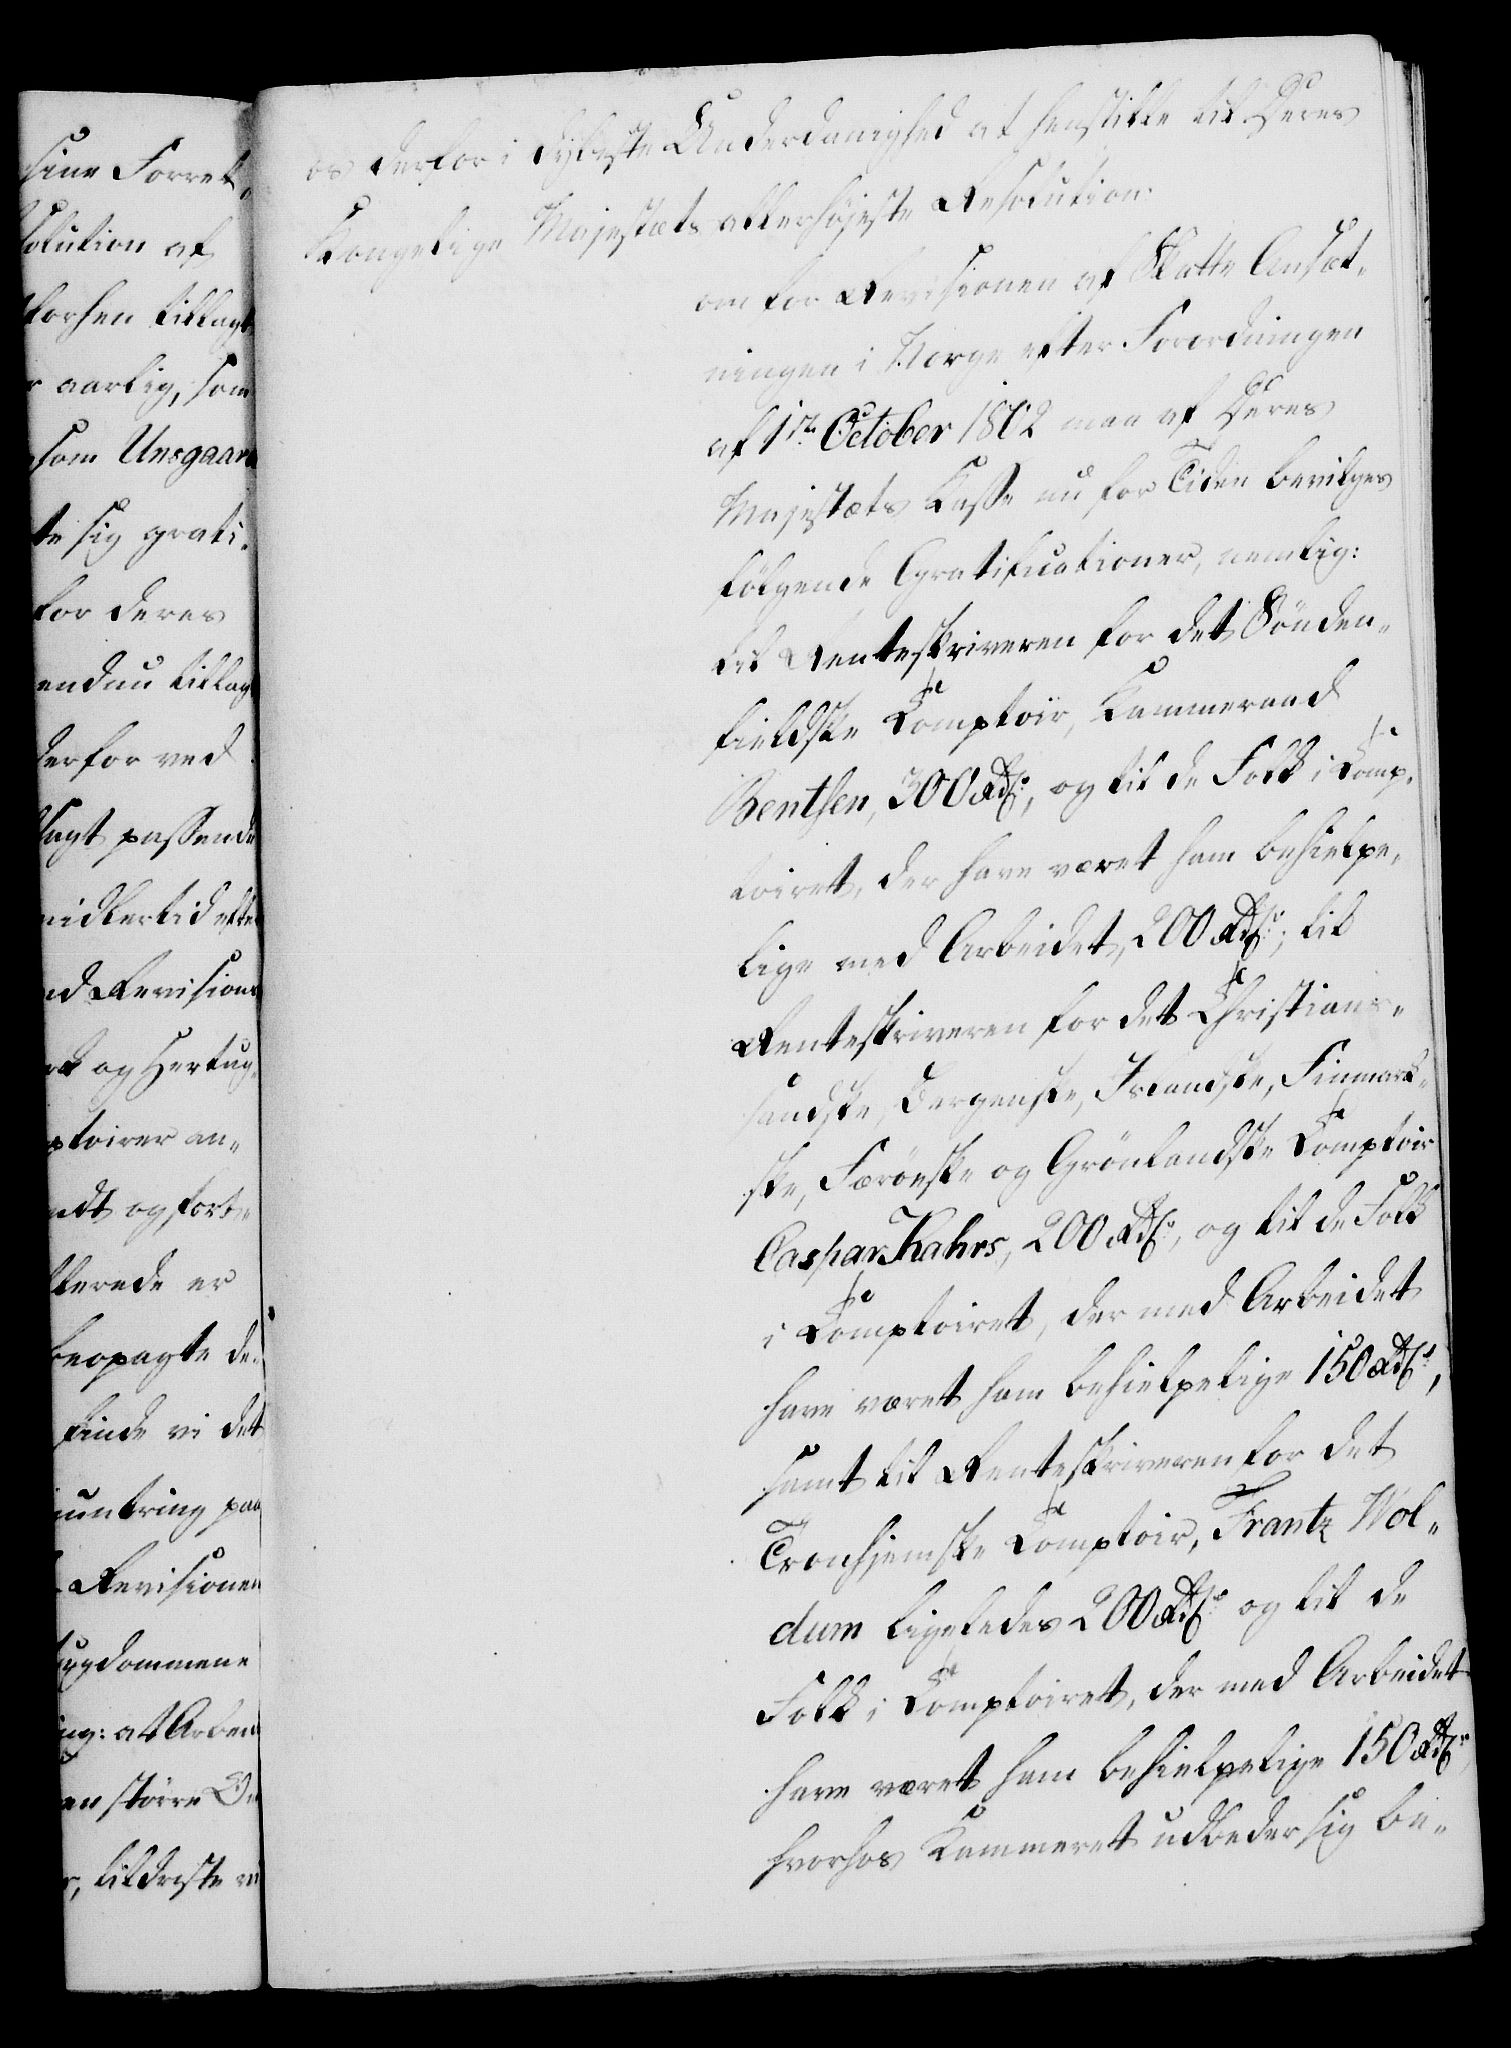 sine Forret-
solution af
forhen tillagt
r aarlig, som
som Unsgaard
te sig grati-
for deres
endnu tillag
derfor ved
sagt passende
midlertid efter
nd Revisions
rk og Hertug-
ptoirer an-
ndt og fort-
llerede er
beopagte de-
finde vi det
muntring paa
Revisionen
tugdommene
ing: at Arbei
en större Om
r, tildriste vi
os derfor i dybeste Underdanighed at henstille til Deres
Kongelige Majestæts allerhöjeste Resolution:
om for Revisionen af Skatte Ansæt-
ningen i Norge efter Forordningen
af 1ste October 1802 maa af Deres
Majestæts Kasse nu for Tiden bevilges
fölgende Gratificationer, nemlig:
til Renteskriveren for det Sönden-
fieldske Comptoir, Kammerraad
Bentsen, 300 Rdlr, og til de Folk i Comp-
toiret, der have været ham behielpe-
lige med Arbeidet, 200 Rdlr; til
Renteskriveren for det Christian-
sandske, Bergenske, Islandske, Finmark-
ske, Færöeske og Grönlandske Comptoir
Caspar Kahrs, 200 Rdlr, og til de Folk
i Comptoiret, der med Arbeidet
have været ham behielpelige 150 Rdlr,
samt til Renteskriveren for det
Tronhjemske Comptoir, Frantz Wol-
dum ligeledes 200 Rdlr og til de
Folk i Comptoiret, der med Arbeidet
have været ham behielpelige 150 Rdlr,
hvorhos Kammeret udbeder sig be-